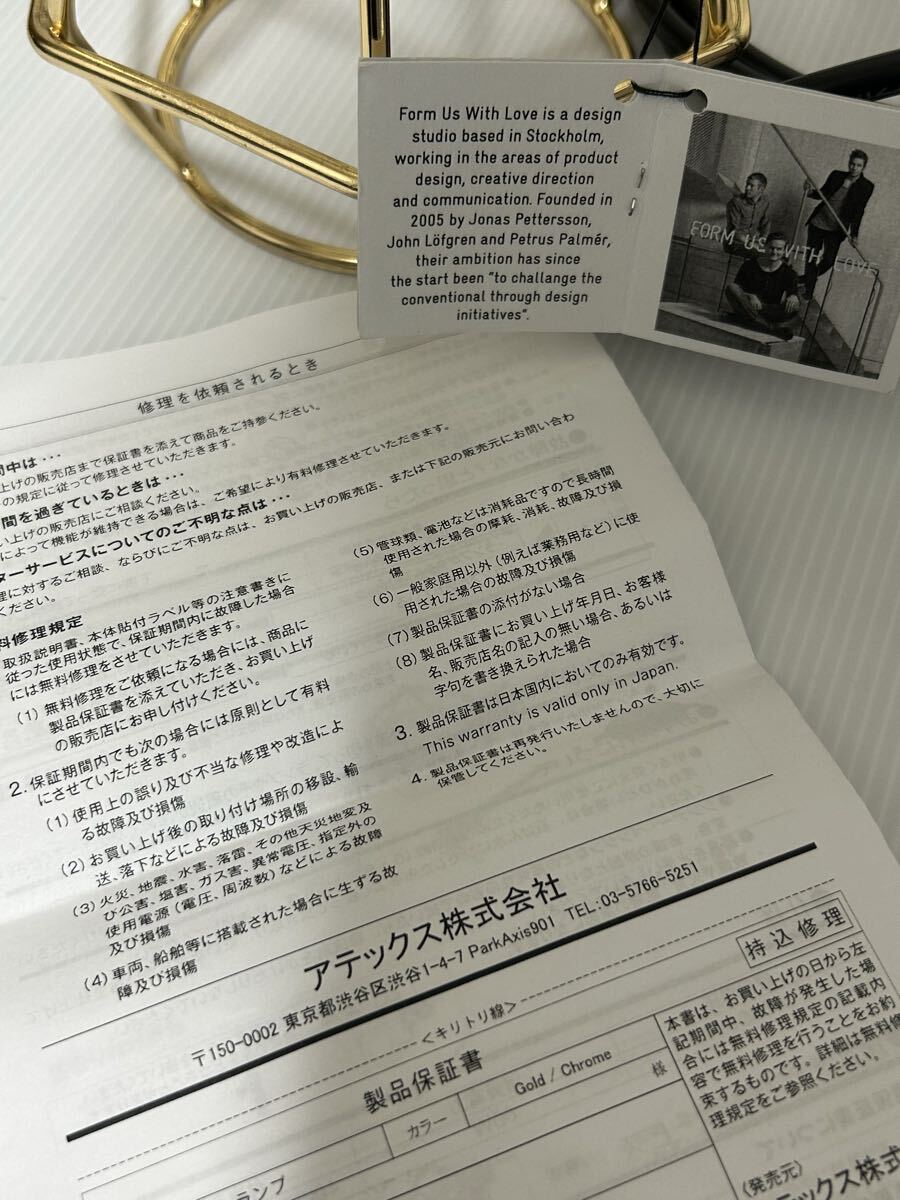 Form Us With Love is a design
studio based in Stockholm,
working in the areas of product
design, creative direction
and communication. Founded in
2005 by Jonas Pettersson,
John Löfgren and Petrus Palmér,
their ambition has since
the start been "to challange the
conventional through design
initiatives".
FORM US WITH LOVE
修理を依頼されるとき
間中は・・・
上げの販売店まで保証書を添えて商品をご持参ください。
の規定に従って修理させていただきます。
間を過ぎているときは・・・
い上げの販売店にご相談ください。
によって機能が維持できる場合は、ご希望により有料修理させていただきます。
ターサービスについてのご不明な点は・・・
理に対するご相談、ならびにご不明な点は、お買い上げの販売店、または下記の販売元にお問い合わ
ください。
料修理規定
取扱説明書、本体貼付ラベル等の注意書きに
従った使用状態で、保証期間内に故障した場合
には無料修理をさせていただきます。
(1) 無料修理をご依頼になる場合には、商品に
製品保証書を添えていただき、お買い上げ
の販売店にお申し付けください。
2. 保証期間内でも次の場合には原則として有料
にさせていただきます。
(1) 使用上の誤り及び不当な修理や改造によ
る故障及び損傷
(2) お買い上げ後の取り付け場所の移設、輸
送、落下などによる故障及び損傷
(3) 火災、地震、水害、落雷、その他天災地変及
び公害、塩害、ガス害、異常電圧、指定外の
使用電源(電圧、周波数)などによる故障
及び損傷
(4) 車両、船舶等に搭載された場合に生ずる故
障及び損傷
(5) 管球類、電池などは消耗品ですので長時間
使用された場合の摩耗、消耗、故障及び損
傷
(6) 一般家庭用以外(例えば業務用など)に使
用された場合の故障及び損傷
(7) 製品保証書の添付がない場合
(8) 製品保証書にお買い上げ年月日、お客様
名、販売店名の記入の無い場合、あるいは
字句を書き換えられた場合
3. 製品保証書は日本国内においてのみ有効です。
This warranty is valid only in Japan.
4. 製品保証書は再発行いたしませんので、大切に
保管してください。
アテックス株式会社
〒150-0002 東京都渋谷区渋谷1-4-7 ParkAxis901 TEL:03-5766-5251
<キリトリ線>
製品保証書
持込修理
カラー
Gold / Chrome
様
ランプ
本書は、お買い上げの日から左
記期間中、故障が発生した場
合には無料修理規定の記載内
容で無料修理を行うことをお約
束するものです。詳細は無料修
理規定をご参照ください。
(発売元)
アテックス株式